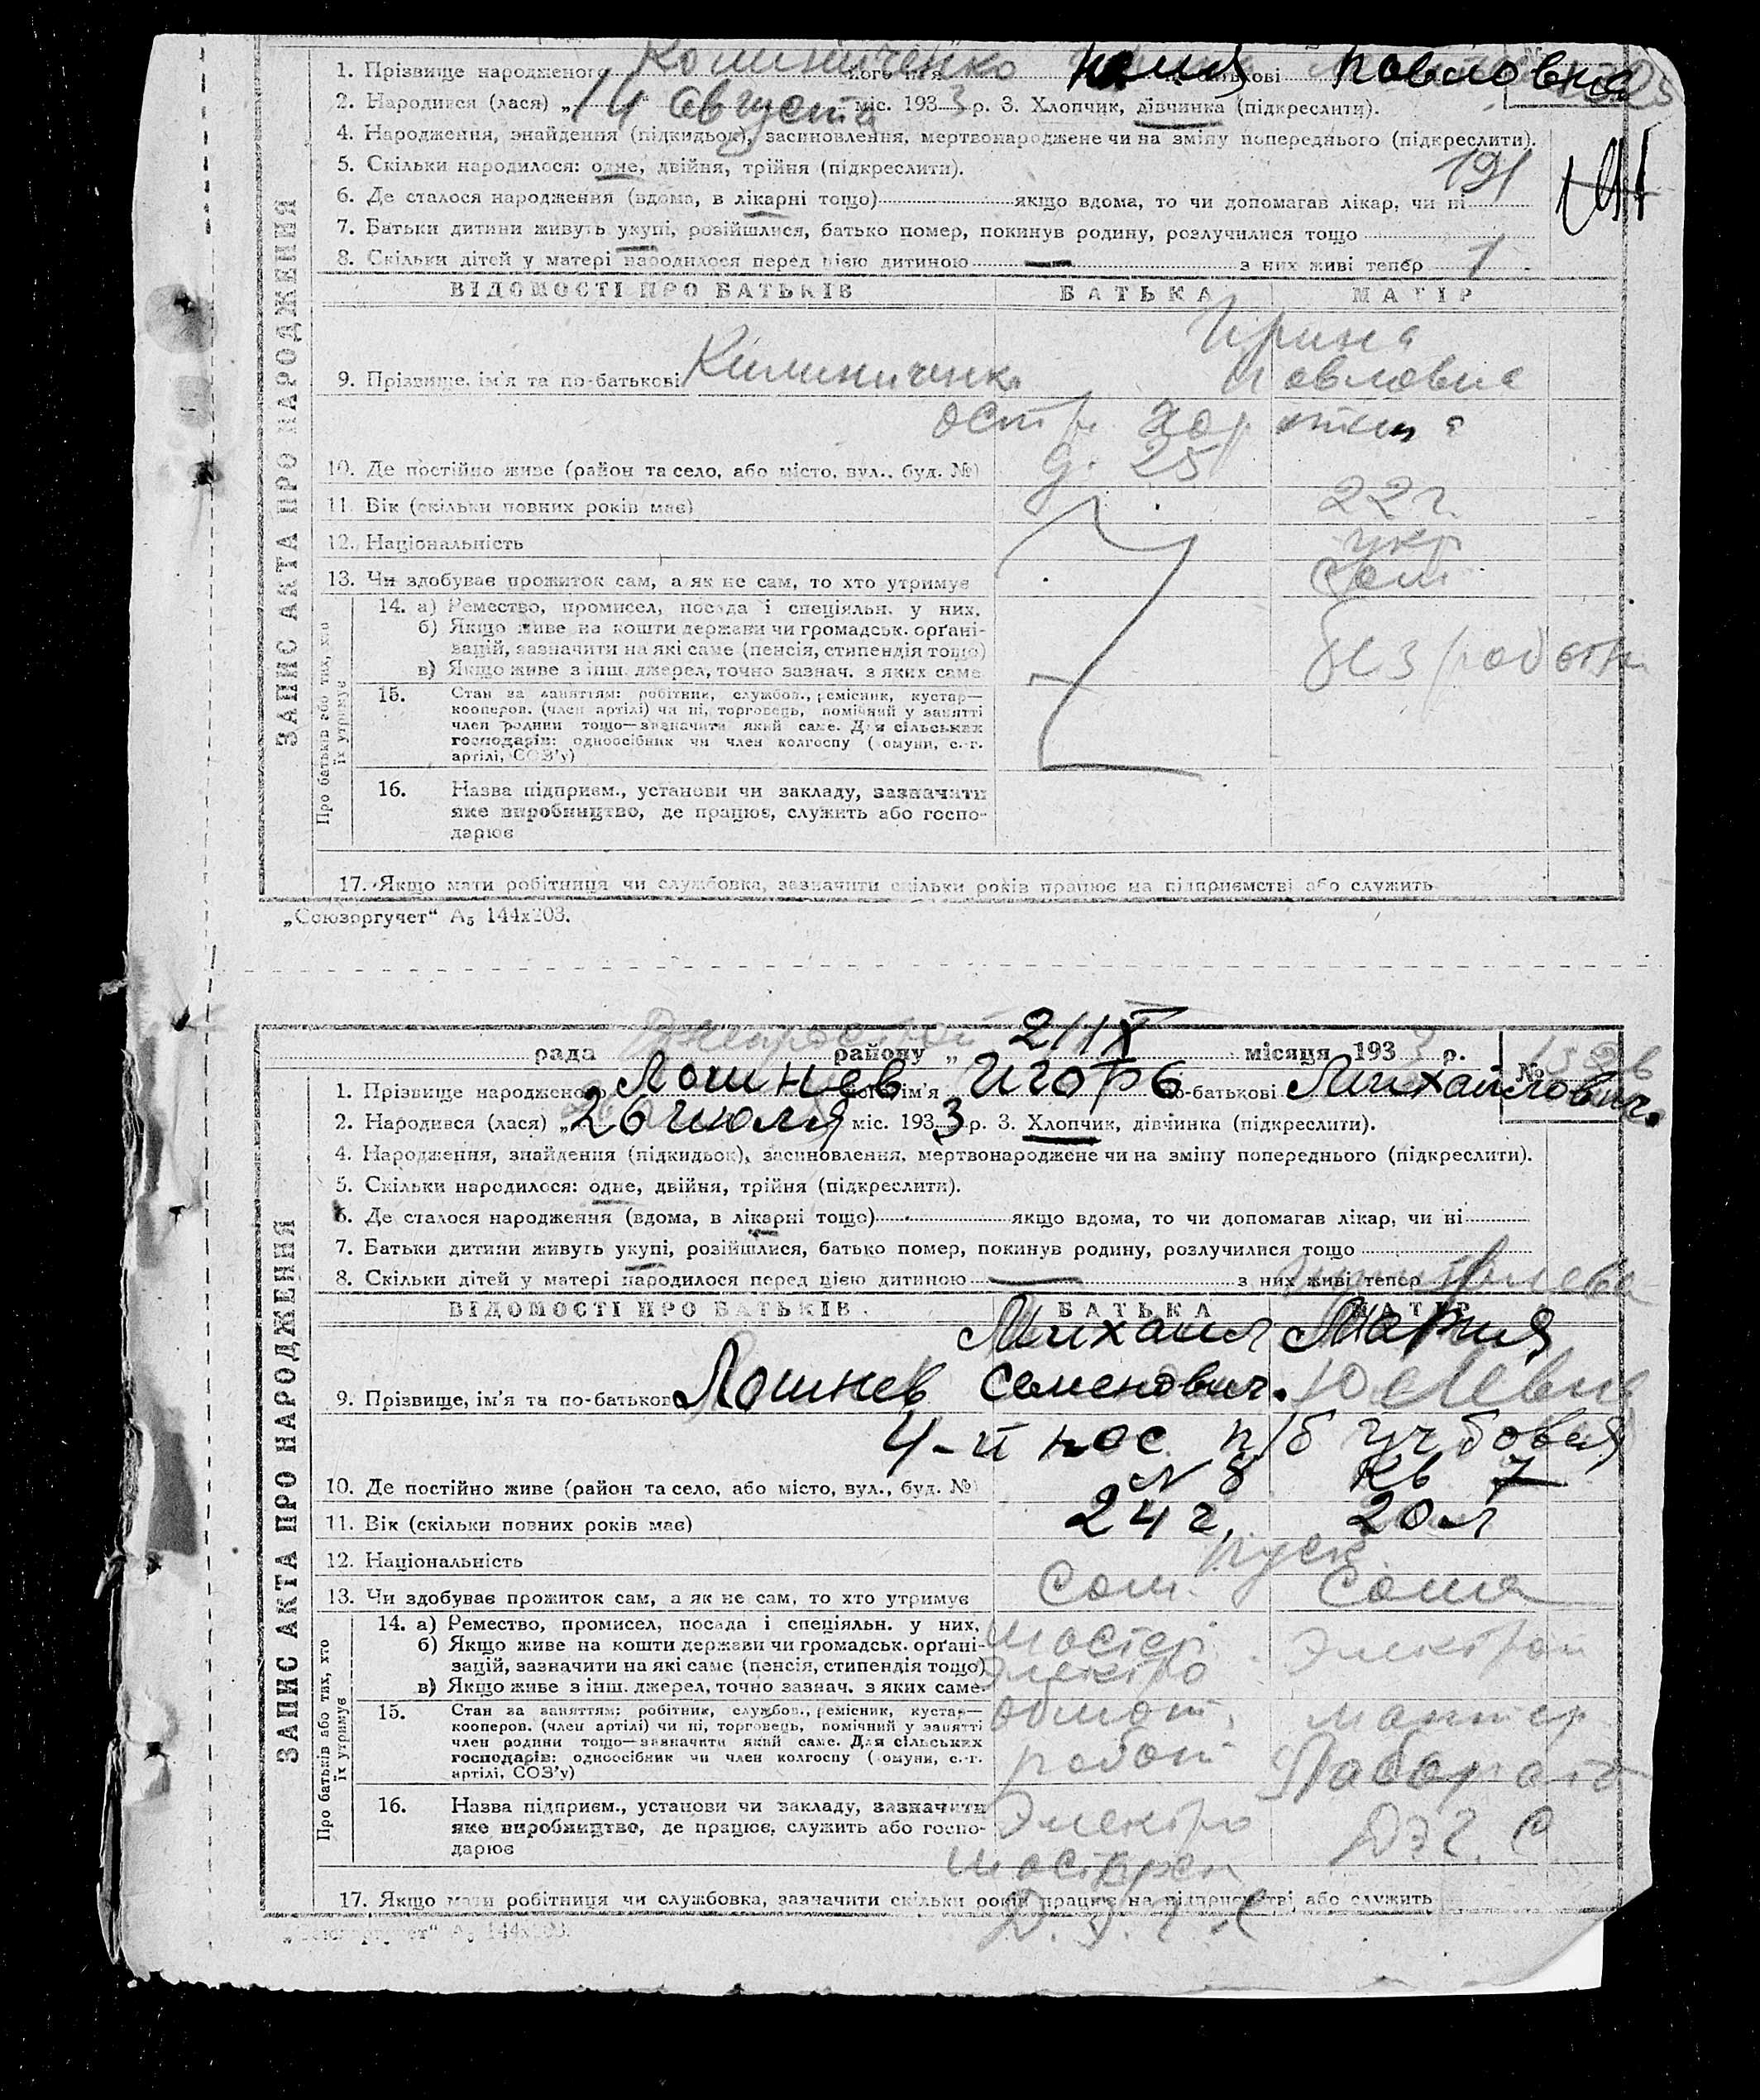 1. Прізвище народженого Комениченко ім'я по-батькові Павловна
2. Народився (лася) „ 14 августа міс. 1933 р. 3. Хлопчик, дівчинка (підкреслити).
4. Народження, знайдення (підкидьок), засиновлення, мертвонароджене чи на зміну попереднього (підкреслити).
5. Скільки народилося: одне, двійня, трійня (підкреслити).
191
6. Де сталося народження (вдома, в лікарні тощо) якщо вдома, то чи допомагав лікар, чи ні
7. Батьки дитини живуть укупі, розійшлися, батько помер, покинув родину, розлучилися тощо
8. Скільки дітей у матері народилося перед цією дитиною — з них живі тепер 1
ЗАПИС АКТА ПРО НАРОДЖЕННЯ
ВІДОМОСТІ ПРО БАТЬКІВ БАТЬКА МАТІР
Ирина
9. Прізвище, ім'я та по-батькові Павловна
д. 25
10. Де постійно живе (район та село, або місто, вул., буд. №)
11. Вік (скільки повних років має) 22 г.
12. Національність укр
13. Чи здобуває прожиток сам, а як не сам, то хто утримує сам
Про батьків або тих, хто їх утримує
14. а) Ремество, промисел, посада і спеціяльн. у них.
б) Якщо живе на кошти держави чи громадськ. орґані-
зацій, зазначити на які саме (пенсія, стипендія тощо)
без работы
в) Якщо живе з інш. джерел, точно зазнач. з яких саме
15. Стан за заняттям: робітник, службов., ремісник, кустар—
кооперов. (член артілі) чи ні, торговець, помічний у занятті
член родини тощо—зазначити який саме. Для сільських
господарів: одноосібник чи член колгоспу (комуни, с.-г.
артілі, СОЗ'у)
16. Назва підприєм., установи чи закладу, зазначити
яке виробництво, де працює, служить або госпо-
дарює
17. Якщо мати робітниця чи службовка, зазначити скільки років працює на підприємстві або служить
„Союзоргучет“ А5 144х203.
рада Днепрострой району „ 2/IX місяця 1933 р. №
1. Прізвище народженого Лошнев ім'я Игорь по-батькові Михайлович.
2. Народився (лася) „ 26 июля міс. 1933 р. 3. Хлопчик, дівчинка (підкреслити).
4. Народження, знайдення (підкидьок), засиновлення, мертвонароджене чи на зміну попереднього (підкреслити).
5. Скільки народилося: одне, двійня, трійня (підкреслити).
6. Де сталося народження (вдома, в лікарні тощо) якщо вдома, то чи допомагав лікар, чи ні
7. Батьки дитини живуть укупі, розійшлися, батько помер, покинув родину, розлучилися тощо
8. Скільки дітей у матері народилося перед цією дитиною — з них живі тепер
ЗАПИС АКТА ПРО НАРОДЖЕННЯ
ВІДОМОСТІ ПРО БАТЬКІВ БАТЬКА МАТІР
Михаил Мария
9. Прізвище, ім'я та по-батькові Лошнев Семенович.
4-й пос
10. Де постійно живе (район та село, або місто, вул., буд. №) N 8 Кв 7
11. Вік (скільки повних років має) 24 г. 20 л
12. Національність русск.
13. Чи здобуває прожиток сам, а як не сам, то хто утримує Сам. Сама
Про батьків або тих, хто їх утримує
14. а) Ремество, промисел, посада і спеціяльн. у них. Мастер
б) Якщо живе на кошти держави чи громадськ. орґані-
зацій, зазначити на які саме (пенсія, стипендія тощо) Электро Электром
в) Якщо живе з інш. джерел, точно зазнач. з яких саме
15. Стан за заняттям: робітник, службов., ремісник, кустар— обмот. монтер
кооперов. (член артілі) чи ні, торговець, помічний у занятті
член родини тощо—зазначити який саме. Для сільських
господарів: одноосібник чи член колгоспу (комуни, с.-г. работ
артілі, СОЗ'у)
16. Назва підприєм., установи чи закладу, зазначити
яке виробництво, де працює, служить або госпо- Электро Д.Э.Г.С
дарює
мастерск
17. Якщо мати робітниця чи службовка, зазначити скільки років працює на підприємстві або служить
„Союзоргучет“ А5 144х203.